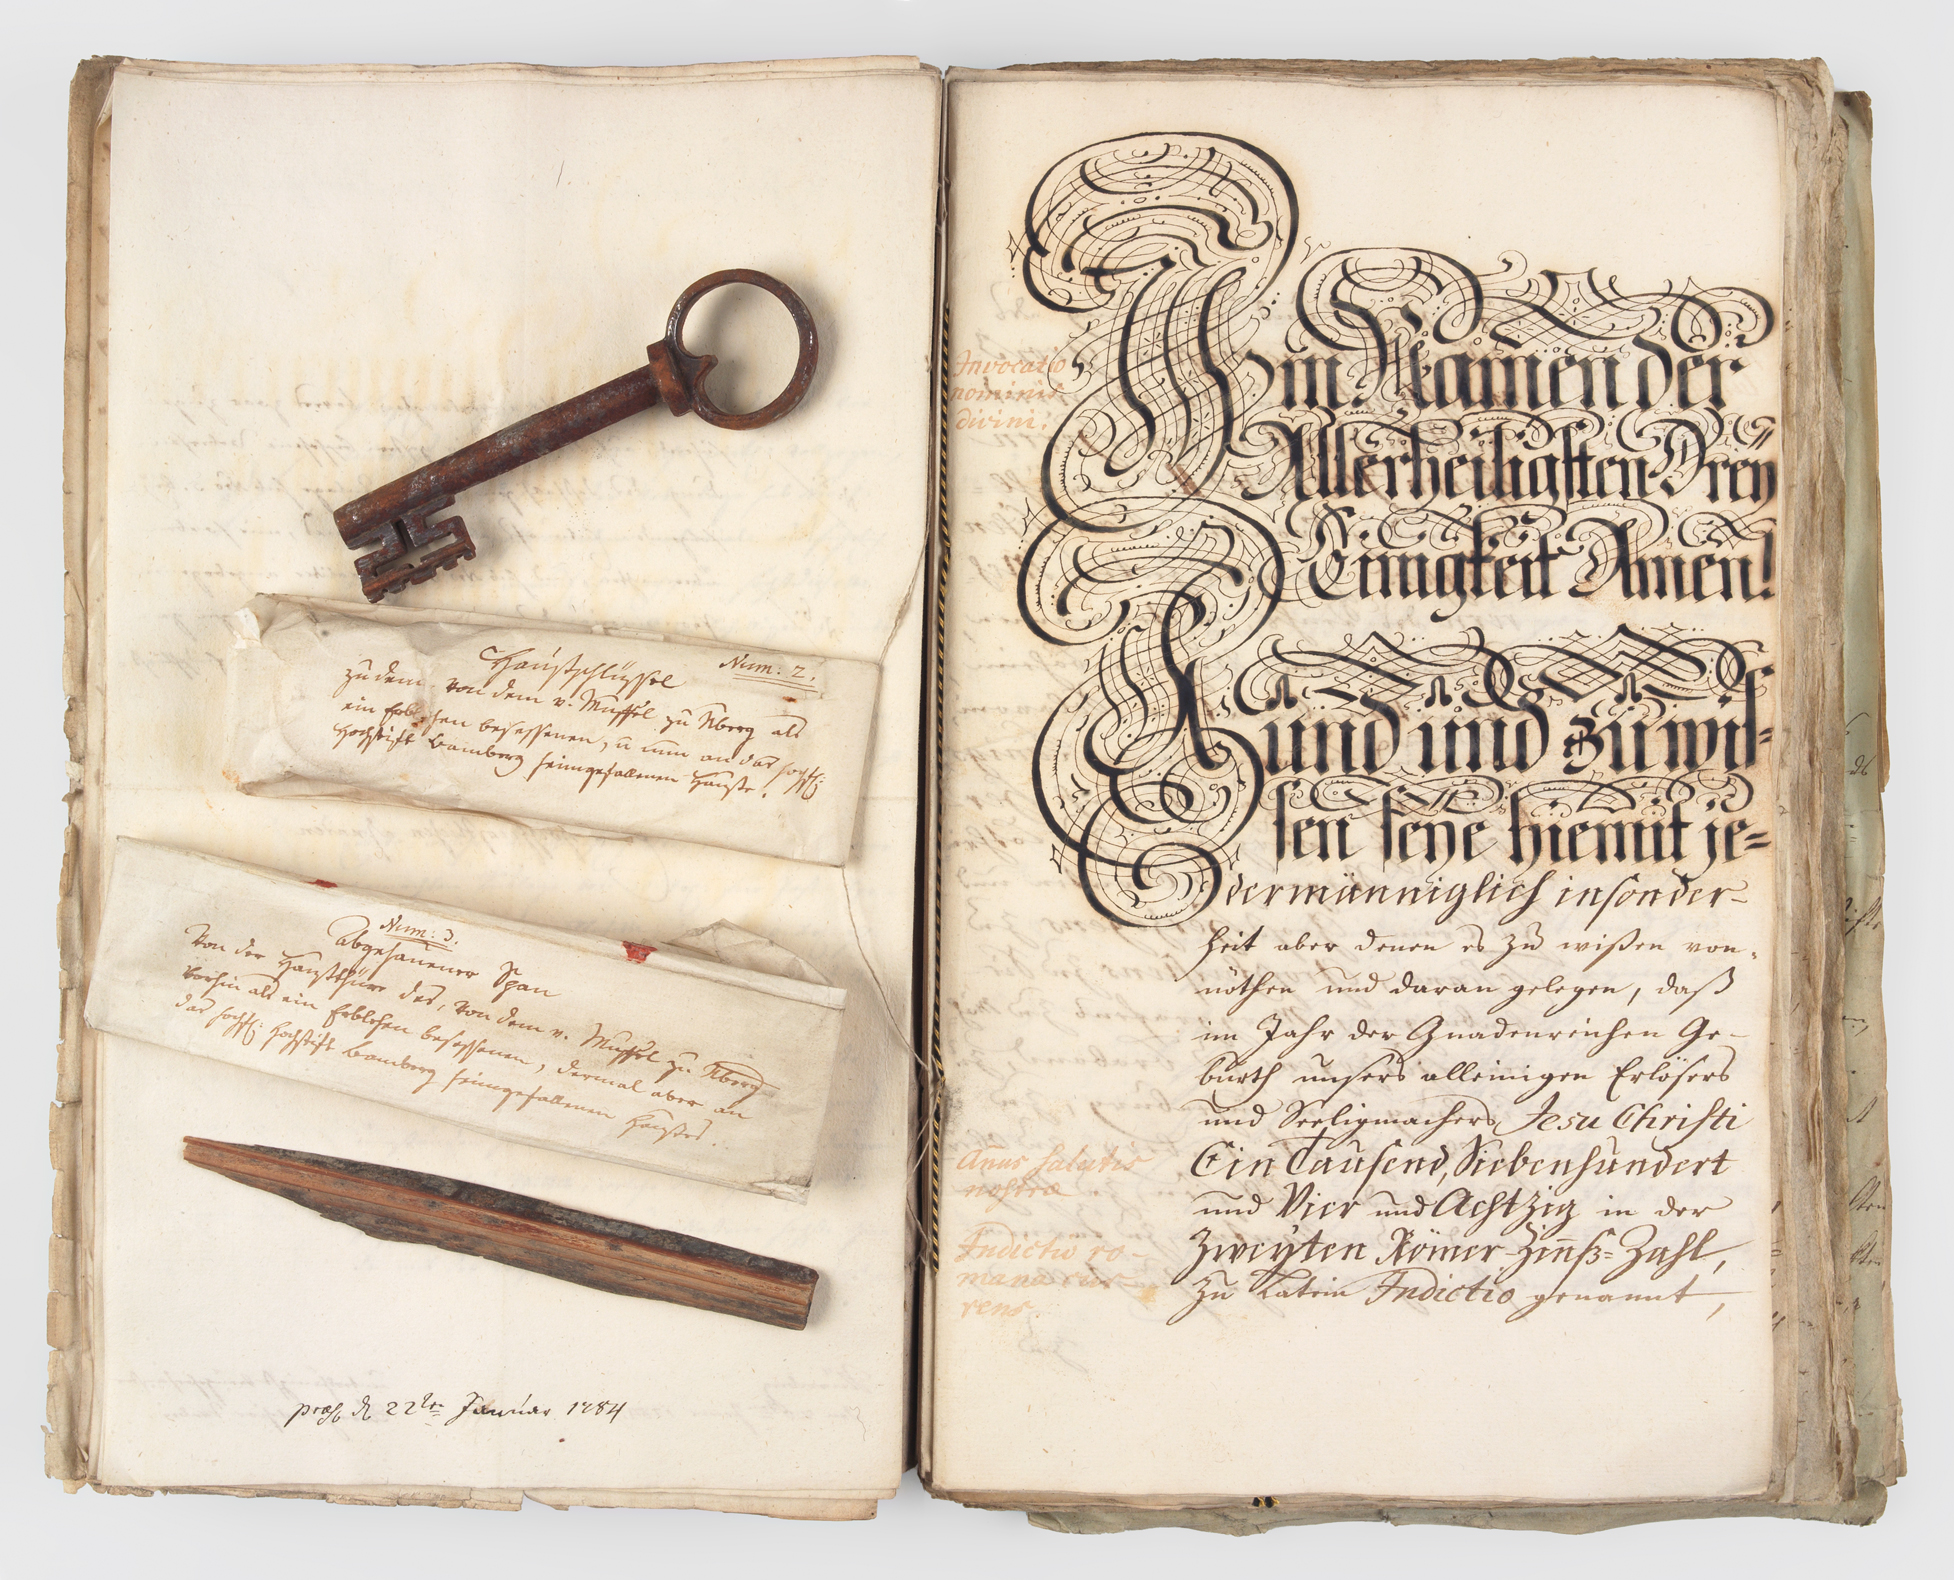 Num: 2.
Haußschlüssel
zu dem von dem v. Muffel zu Nberg als
ein Erblehen besessenen, u nun an das hochfl:
Hochstift Bamberg heimgefallenen Hauße.
Num: 3.
Abgehauener Span
Von der Haußthüre des, von dem v. Muffel zu Nberg
vorhin als ein Erblehen besessenen, dermal aber an
das hochfl: Hochstift Bamberg heimgefallenen Haußes.
præs d 22ten Januar 1784
Invocatio
nominis
divini:
Im Namen der
Allerheiligsten Drey
Einigkeit Amen!
Kund und zu wis=
sen seye hiemit je=
dermänniglich insonder-
heit aber denen es zu wißen von-
nöthen und daran gelegen, daß
im Jahr der Gnadenreichen Ge-
burth unsers alleinigen Erlösers
und Seeligmachers Jesu Christi
Añus salutis
nostræ
Ein Tausend, Siebenhundert
und Vier und Achtzig in der
Indictio ro-
mana cur-
rens.
Zweyten Römer-Zinß=Zahl,
zu Latein Indictio genannt,